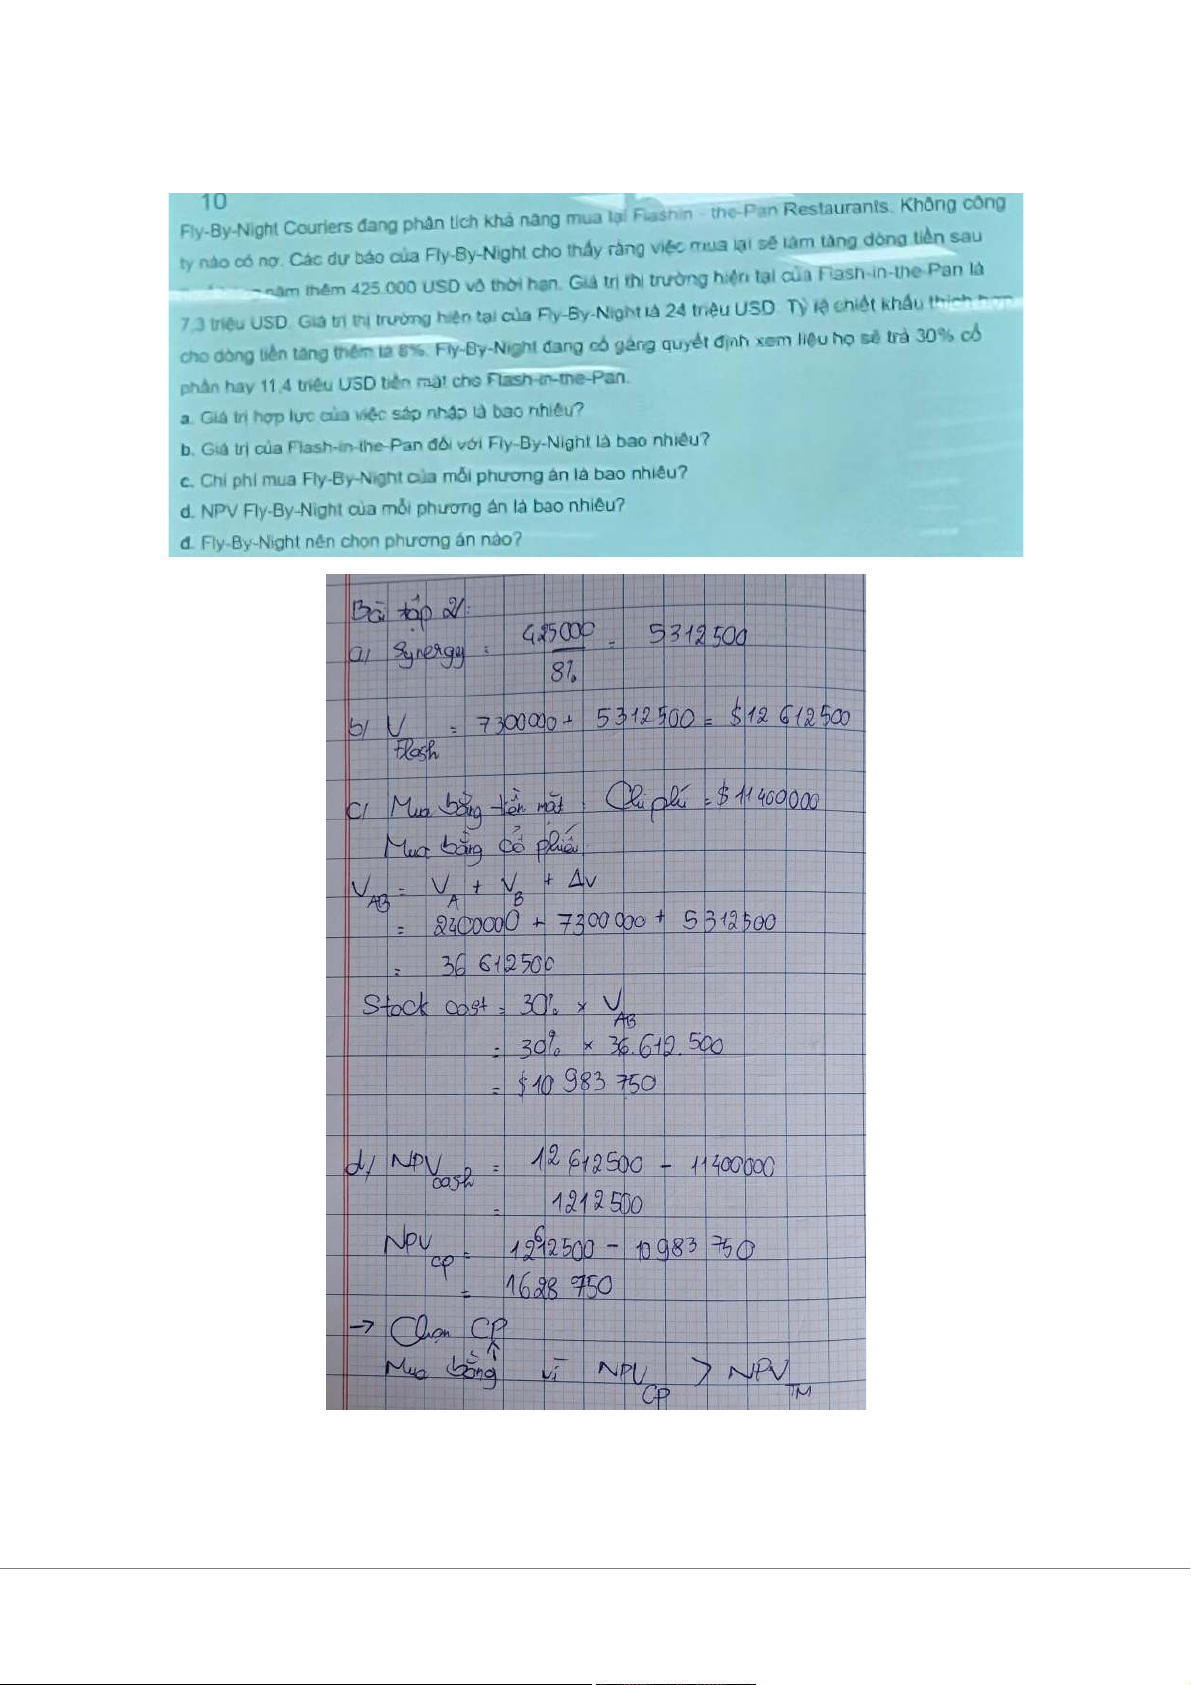 10
Fly-By-Night Couriers đang phân tích khả năng mua lại Flashin - the-Pan Restaurants. Không công
ty nào có nợ. Các dự báo của Fly-By-Night cho thấy rằng việc mua lại sẽ làm tăng dòng tiền sau
năm thêm 425.000 USD vô thời hạn. Giá trị thị trường hiện tại của Flash-in-the-Pan là
7,3 triệu USD. Giá trị thị trường hiện tại của Fly-By-Night là 24 triệu USD. Tỷ lệ chiết khấu thích hợp
cho dòng tiền tăng thêm là 8%. Fly-By-Night đang cố gắng quyết định xem liệu họ sẽ trả 30% cổ
phần hay 11,4 triệu USD tiền mặt cho Flash-in-the-Pan.
a. Giá trị hợp lực của việc sáp nhập là bao nhiêu?
b. Giá trị của Flash-in-the-Pan đối với Fly-By-Night là bao nhiêu?
c. Chi phí mua Fly-By-Night của mỗi phương án là bao nhiêu?
d. NPV Fly-By-Night của mỗi phương án là bao nhiêu?
đ. Fly-By-Night nên chọn phương án nào?
Bài tập 2/:
a/ Synergy = 425000 / 8% = 5312500
b/ V Flash = 7300000 + 5312500 = $12 612500
c/ Mua bằng tiền mặt : Chi phí = $11400000
Mua bằng cổ phiếu
V AB = V A + V B + Δv
= 2400000 + 7300000 + 5312500
= 36 612500
Stock cost = 30% × V AB
= 30% × 36.612.500
= $10 983 750
d/ NPV cash = 12 612500 - 11400000
= 1212500
NPV CP = 12612500 - 10983 750
= 1628 750
→ Chọn CP
Mua bằng ↑ vì NPV CP > NPV TM